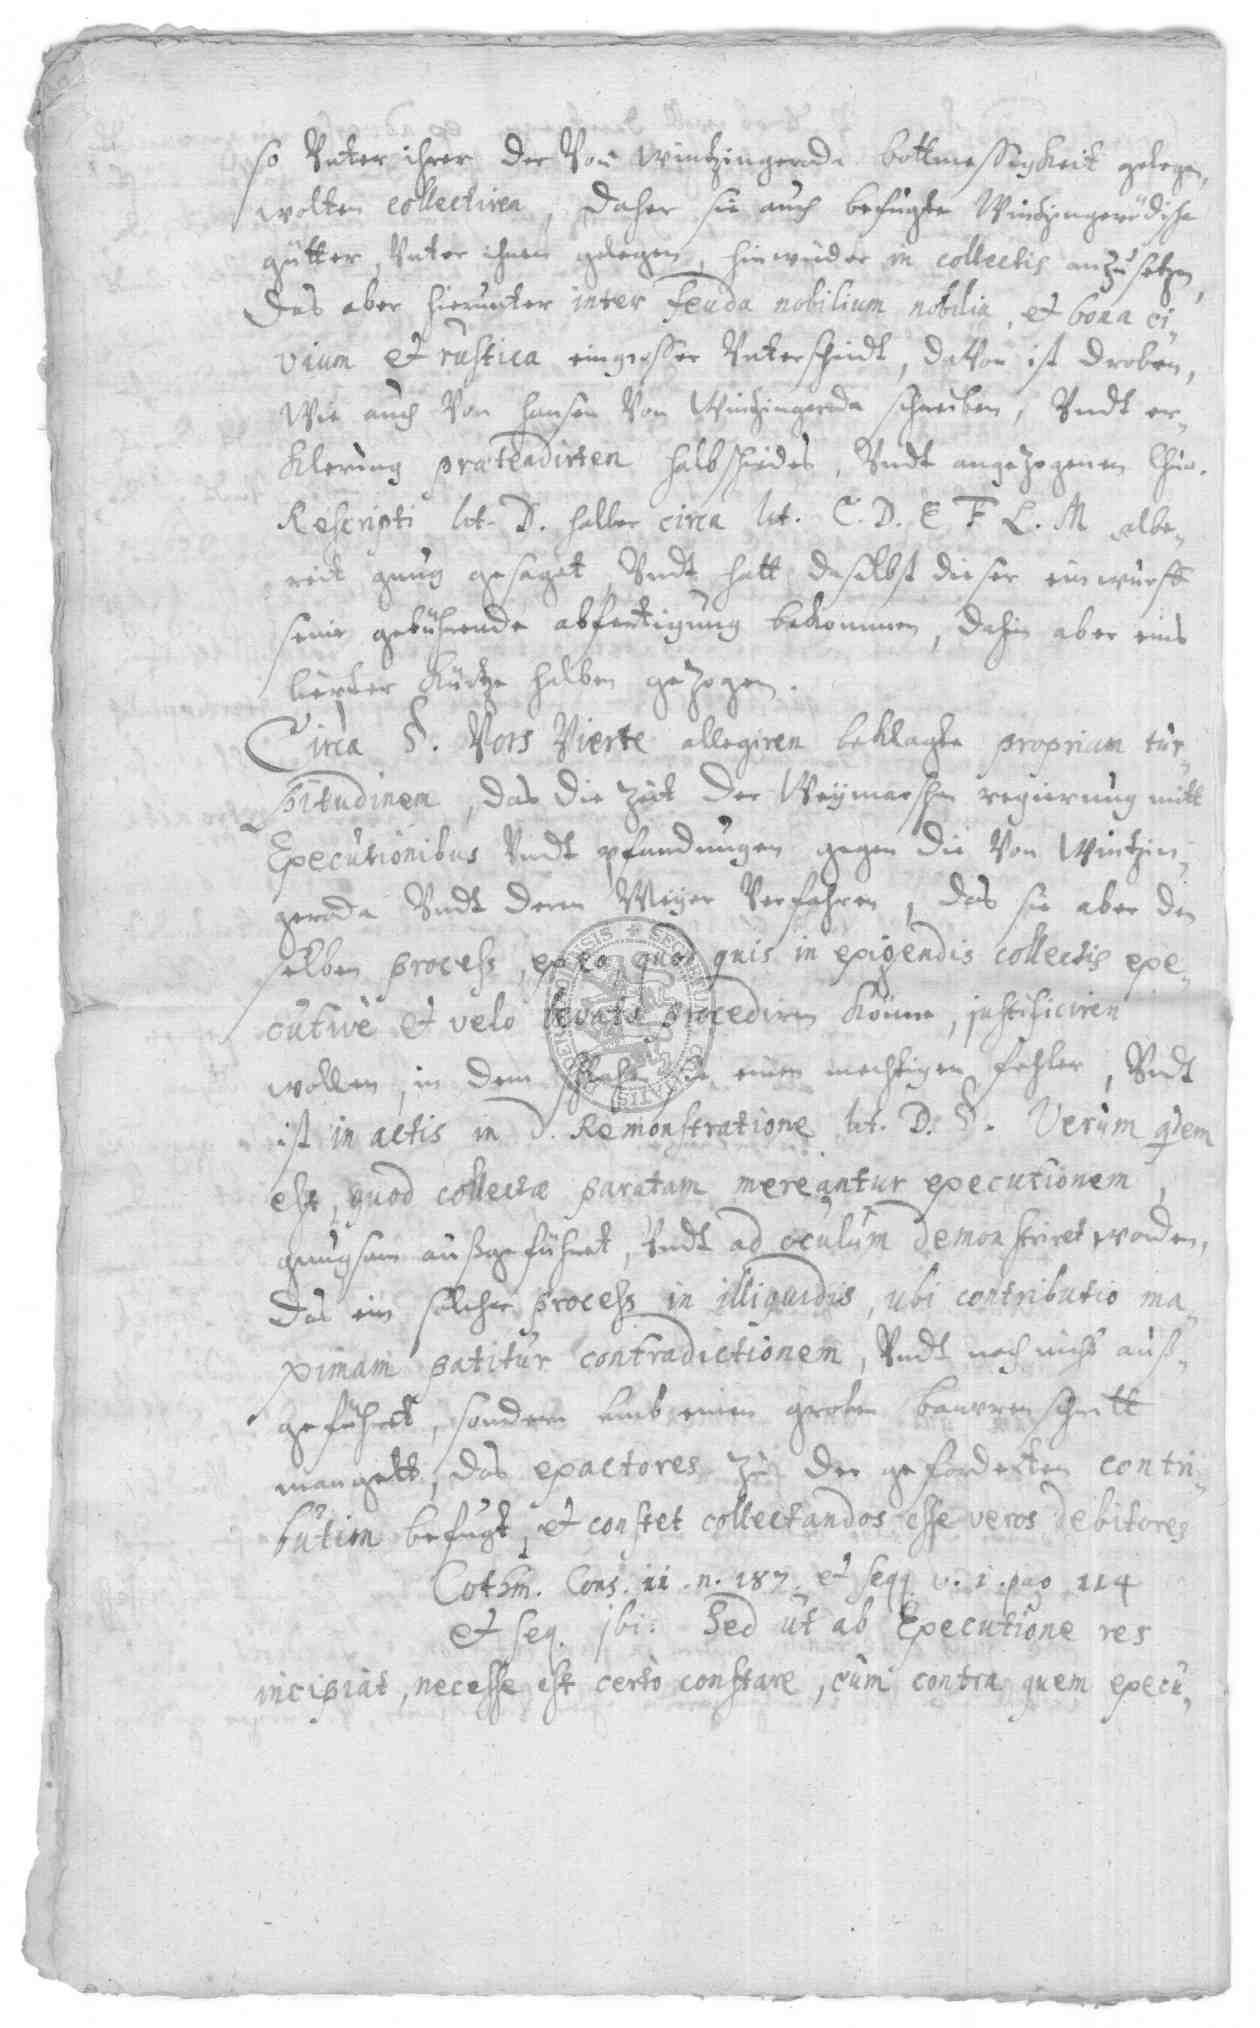 so Vnter ihrer der Von Wintzingeroda bottmessigkeit gelegen,
wolten collectiren, daher sie auch befugte Wintzingerödische
gütter, Vnter ihnen gelegen, hinwieder in collectis anzusetzen,
Das aber hierunter inter feuda nobilium nobilia, et bona ci-
vium et rustica ein grosser Vnterscheidt, davon ist droben,
Wie auch Von Hansen Von Wintzingeroda schreiben, Vndt er-
klerung prætendirten halbschiedes, Vndt angezogenen Chur.
Rescripti lit. D. halber circa lit. C. D. E F L. M albe-
reit gnug gesaget, Vndt hatt daselbst dieser einwurff
seine gebührende abfertigung bekommen, dahin aber
kürtze halben gezogen.
Circa §. Vors Vierte allegiren beklagte propriam tur-
pitudinem, das die Zeit der Weymarschen regierung mitt
Executionibus Vndt pfandungen gegen die Von Wintzin-
geroda Vndt deren Meyer Verfahren, das sie aber den
selben process, ex eo, quod quis in exigendis collectis exe-
cutivè et velo levato procediren könne, justificiren
wollen, in dem sie einen mechtigen fehler, Vndt
ist in actis in d. Remonstratione lit. D. §. Verum qdem
est, quod collectæ paratam mereantur executionem,
gnugsam außgeführet, Vndt ad oculum demonstriret worden,
Das ein solcher process in illiquidis, ubi contributio ma-
ximam patitur contradictionem, Vndt noch nicht auß-
geführet, sondern umb einen groben bauren schritt
mangelt, das exactores zu der geforderten contri-
bution befugt, et constet collectandos esse veros debitores
Cothm. Cons. 11. n. 187. et seqq. v. 1. pag 114
et seq. ibi: Sed ut ab Executione res
incipiat, necesse est certò constare, eum contra quem execu-